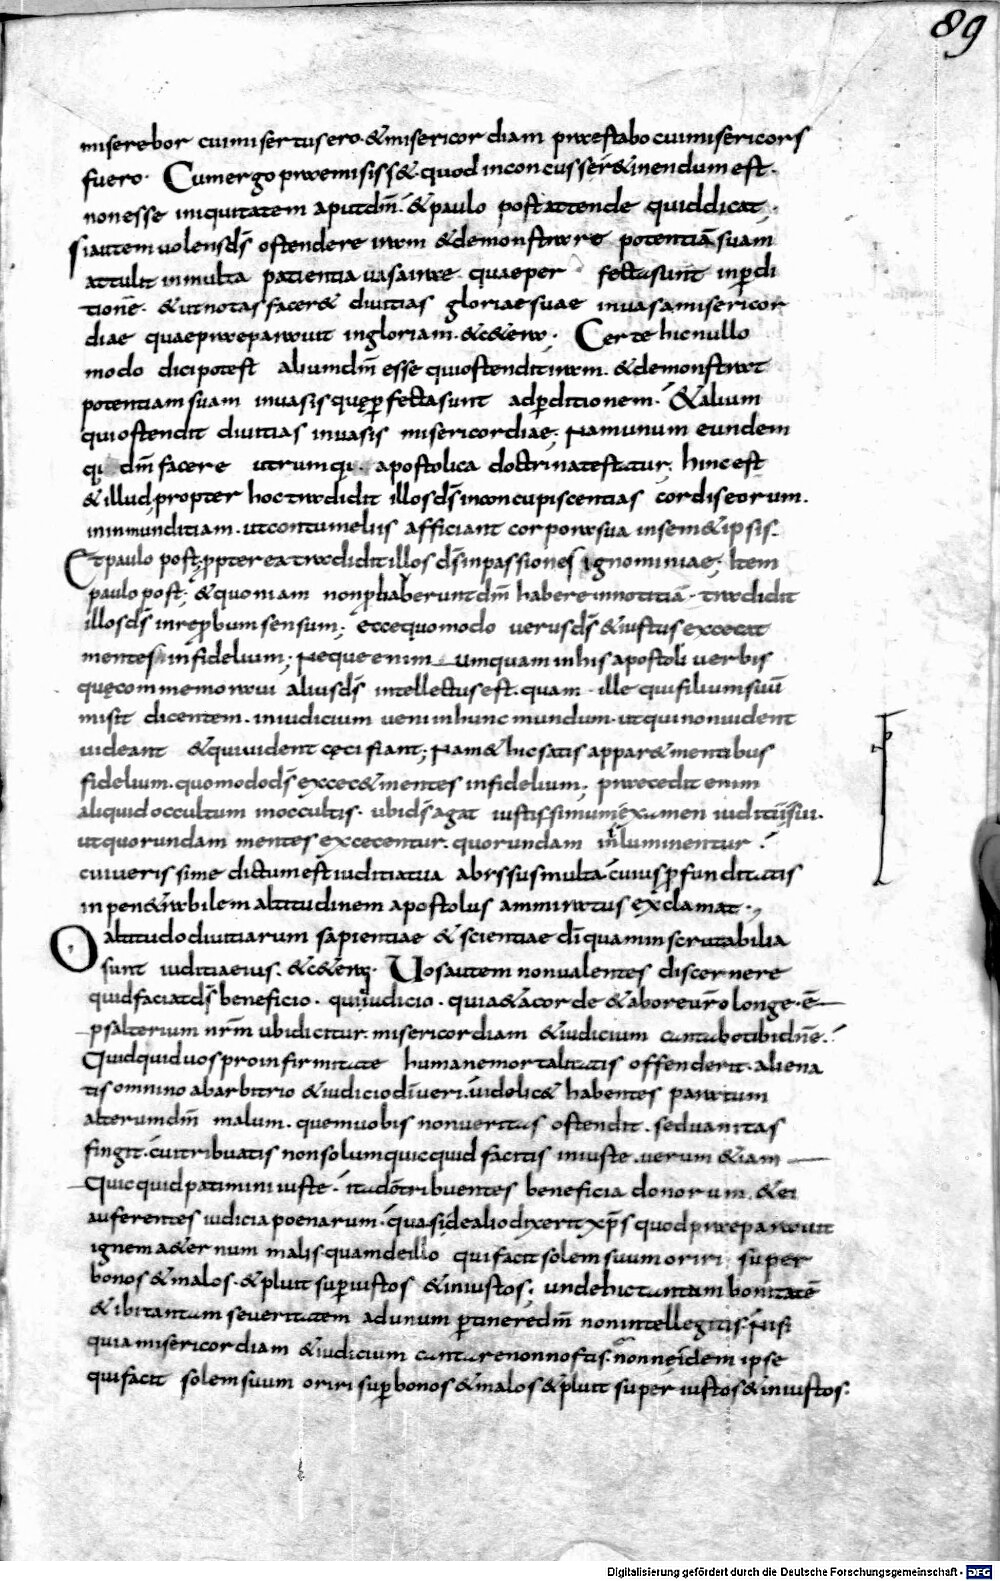 89
miserebor cui misertus ero. & misericordiam praestabo cui misericors
fuero. Cum ergo praemisiss&. quod inconcusse r&inendum est.
non esse iniquitatem aput dm̄. & paulo post attende quid dicat.
si autem volens ds̄ ostendere iram & demonstrare potentiā suam
attulit in multa patientia vasa irae. quae per fecta sunt in p̱di
tionē. & ut notas facer& divitias gloriae suae in vasa misericor
diae quae praeparavit in gloriam. & c&era. Certe hic nullo
modo dici potest alium dm̄ esse qui ostendit iram. & demonstrat
potentiam suam in vasis quę p̱fecta sunt ad p̱ditionem. & alium
qui ostendit divitias in vasis misericordiae; Nam unum eundem
q; dm̄ facere utrumq;. apostolica doctrina testatur; hinc est
& illud propter hoc tradidit illos ds̄ in concupiscentias cordis eorum.
in inmunditiam. ut contumeliis afficiant corpora sua in sem&ipsis.
Et paulo post; ꝓpterea tradidit illos ds̄ in passiones ignominiae; Item
paulo post; & quoniam non ꝓbaberunt dm̄ habere in notitiā. tradidit
illos ds̄ in reꝓbum sensum; ecce quomodo verus ds̄ & iustus excecat
mentes infidelium; Neque enim umquam in his apostoli verbis
quę commemoravi alius ds̄ intellectus est. quam ille qui filium suū
misit dicentem. in iudicium veni in hunc mundum. ut qui non vident
videant & qui vident cęci fiant; Nam & hic satis appar& mentibus
fidelium. quomodo ds̄ excec& mentes infidelium; praecedit enim
aliquid occultum in occultis. ubi ds̄ agat iustissimum examen iuditii sui.
ut quorundam mentes excecentur. quorundam inluminentur.
cui verissime dictum est iuditia tua abyssus multa. cuius ꝓfunditatis
inpen&rabilem altitudinem apostolus ammiratus exclamat.
O altitudo divitiarum sapientiae & scientiae dī quam inscrutabilia
sunt iuditia eius. & c&era. Vos autem non valentes discernere
quid faciat ds̄ beneficio. quid iudicio. quia & a corde & ab ore vr̄o longe. ē
psalterium nr̄m ubi dicitur. misericordiam & iudicium cantabo tibi dn̄e.
Quidquid vos pro infirmitate humane mortalitatis offenderit. aliena
tis omnino ab arbitrio & iudicio dī veri. videlic& habentes paratum
alterum dm̄ malum. quem vobis non veritas ostendit. sed vanitas
fingit. cui tribuatis non solum quicquid facitis iniuste. verum &iam
quicquid patimini iuste. ita dō tribuentes beneficia donorum. & ei
auferentes iudicia poenarum. quasi de alio dixerit xp̄s quod praeparavit
ignem a&ernum malis. quam de illo qui facit solem suum oriri super
bonos & malos. & pluit sup̱ iustos & iniustos; unde hic tantam bonitatē
& ibi tantam severitatem ad unum p̱tinere dm̄ non intellegitis. Nisi
quia misericordiam & iudicium cantare non nostis. nonne idem ipse
qui facit solem suum oriri sup̱ bonos & malos & pluit super iustos & iniustos:
Digitalisierung gefördert durch die Deutsche Forschungsgemeinschaft - DFG